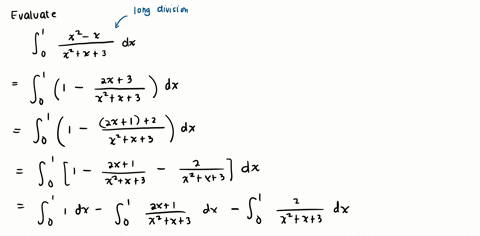 Evaluate
long division
∫₀¹ (x² - x)/(x² + x + 3) dx
= ∫₀¹ (1 - (2x + 3)/(x² + x + 3)) dx
= ∫₀¹ (1 - ((2x + 1) + 2)/(x² + x + 3)) dx
= ∫₀¹ [1 - (2x + 1)/(x² + x + 3) - 2/(x² + x + 3)] dx
= ∫₀¹ 1 dx - ∫₀¹ (2x + 1)/(x² + x + 3) dx - ∫₀¹ 2/(x² + x + 3) dx